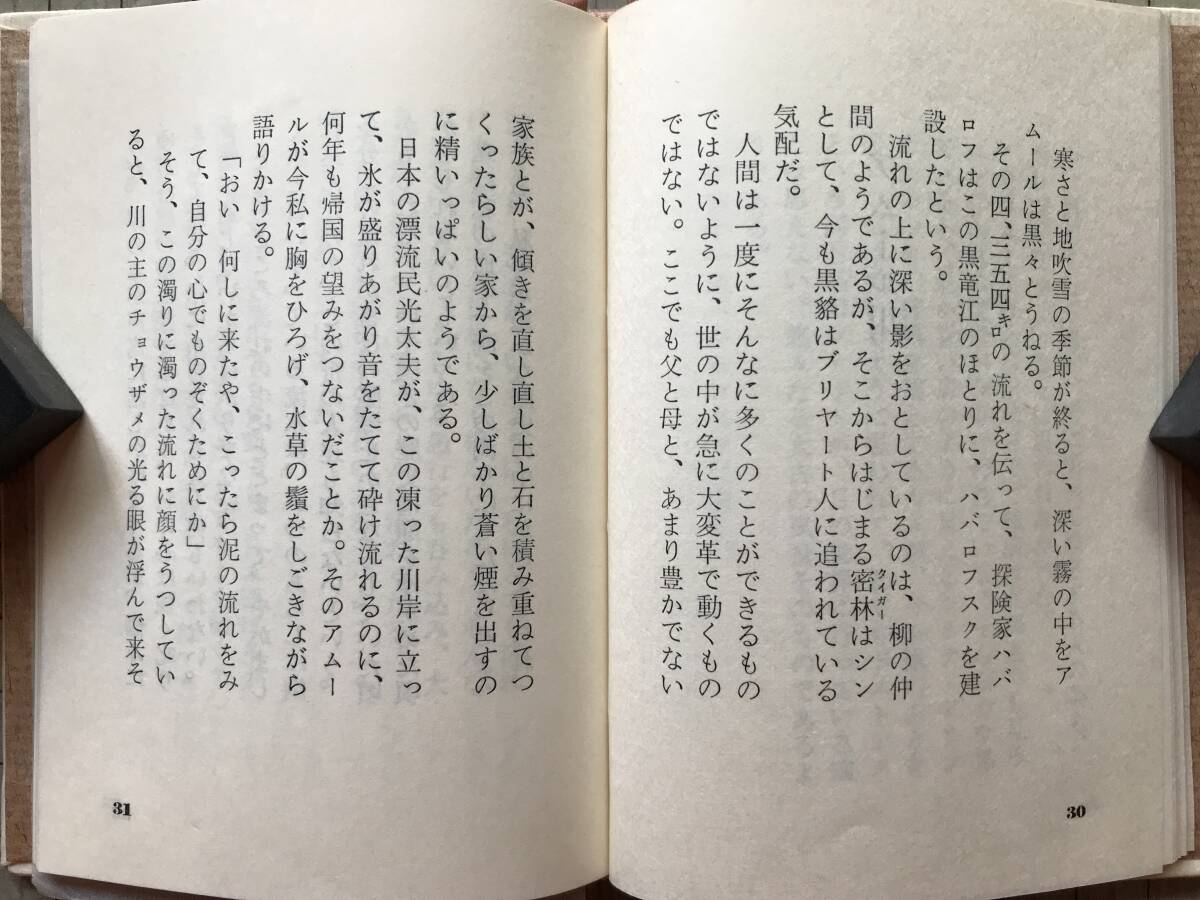 寒さと地吹雪の季節が終ると、深い霧の中をア
ムールは黒々とうねる。
その四、三五四キロの流れを伝って、探険家ハバ
ロフはこの黒竜江のほとりに、ハバロフスクを建
設したという。
流れの上に深い影をおとしているのは、柳の仲
間のようであるが、そこからはじまる密林はシン
タイガー
として、今も黒貂はブリヤート人に追われている
気配だ。
人間は一度にそんなに多くのことができるもの
ではないように、世の中が急に大変革で動くもの
ではない。ここでも父と母と、あまり豊かでない
30
家族とが、傾きを直し直し土と石を積み重ねてつ
くったらしい家から、少しばかり蒼い煙を出すの
に精いっぱいのようである。
日本の漂流民光太夫が、この凍った川岸に立っ
て、氷が盛りあがり音をたてて砕け流れるのに、
何年も帰国の望みをつないだことか。そのアムー
ルが今私に胸をひろげ、水草の鬚をしごきながら
語りかける。
「おい、何しに来たや、こったら泥の流れをみ
て、自分の心でものぞくためにか」
そう、この濁りに濁った流れに顔をうつしてい
ると、川の主のチョウザメの光る眼が浮んで来そ
31